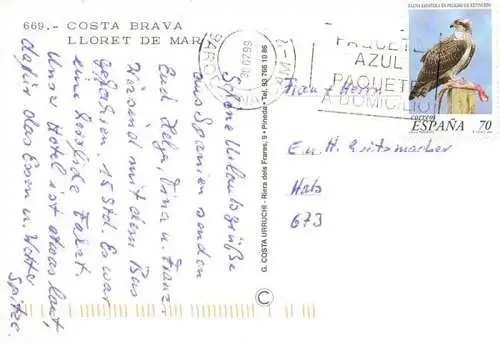 669. - COSTA BRAVA
LLORET DE MAR
Schöne Urlaubsgrüße
aus Spanien senden
Euch Helga, Tina u. Franz.
Wir sind mit dem Bus
gefahren. 15 Std. Es war
eine Fahrt.
Unser Hotel ist etwas laut,
dafür das Essen u. Wetter
Spitze.
G. COSTA URRUCHI - Riera dels Frares, 9 - Pineda - Tel. 93 766 10 86
PAQUETE
AZUL
PAQUETE
A DOMICILIO
FAUNA ESPAÑOLA EN PELIGRO DE EXTINCIÓN
correos
ESPAÑA 70
Fam. Herrn
E. u. H.
Hals
673
C